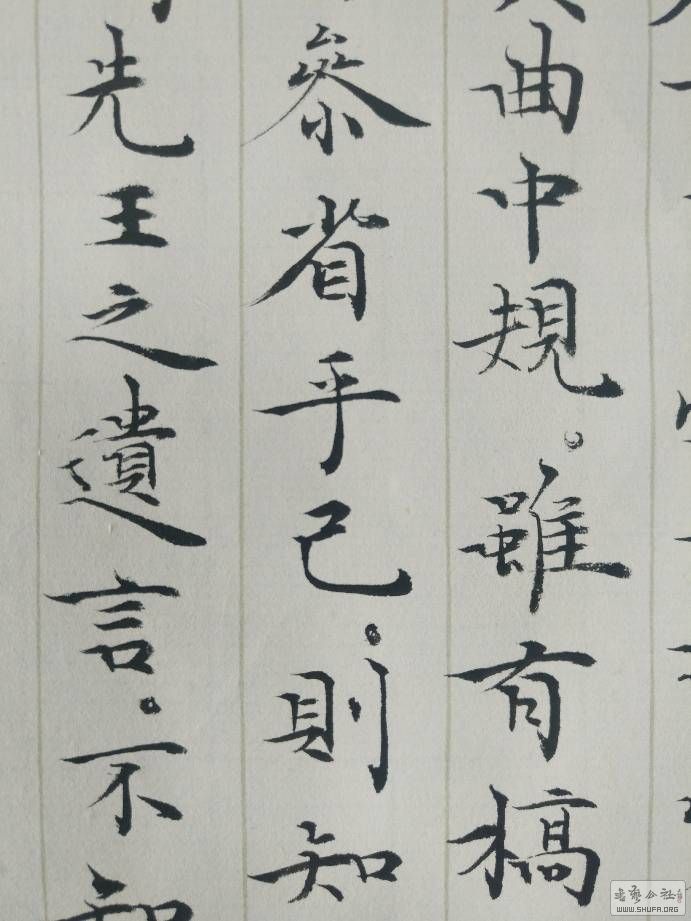 曲中規。雖有槁
參省乎己。則知
先王之遺言。不知
WWW.SHUFA.ORG